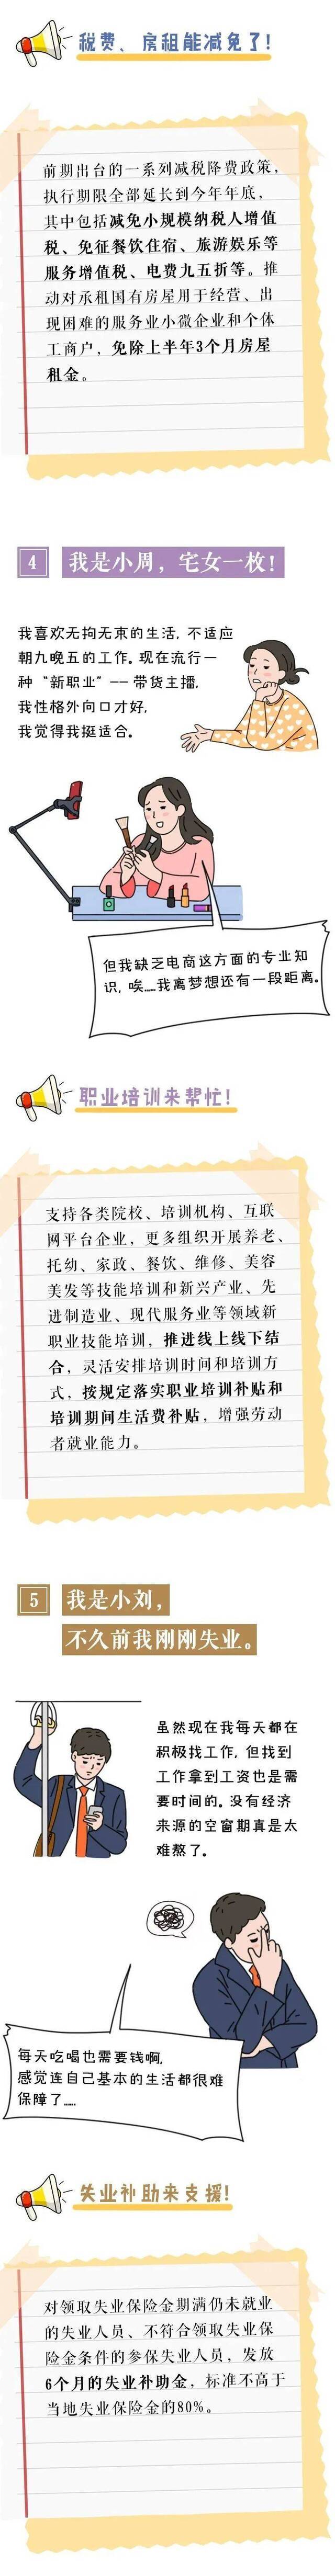 税费、房租能减免了!
前期出台的一系列减税降费政策，
执行期限全部延长到今年年底，
其中包括减免小规模纳税人增值
税、免征餐饮住宿、旅游娱乐等
服务增值税、电费九五折等。推
动对承租国有房屋用于经营、出
现困难的服务业小微企业和个体
工商户，免除上半年3个月房屋
租金。
4 我是小周，宅女一枚!
我喜欢无拘无束的生活, 不适应
朝九晚五的工作。现在流行一
种“新职业”-- 带货主播,
我性格外向口才好,
我觉得我挺适合。
但我缺乏电商这方面的专业知
识, 唉……我离梦想还有一段距离。
职业培训来帮忙!
支持各类院校、培训机构、互联
网平台企业，更多组织开展养老、
托幼、家政、餐饮、维修、美容
美发等技能培训和新兴产业、先
进制造业、现代服务业等领域新
职业技能培训，推进线上线下结
合，灵活安排培训时间和培训方
式，按规定落实职业培训补贴和
培训期间生活费补贴，增强劳动
者就业能力。
5 我是小刘，
不久前我刚刚失业。
虽然现在我每天都在
积极找工作, 但找到
工作拿到工资也是需
要时间的。没有经济
来源的空窗期真是太
难熬了。
每天吃喝也需要钱啊,
感觉连自己基本的生活都很难
保障了……
失业补助来支援!
对领取失业保险金期满仍未就业
的失业人员、不符合领取失业保
险金条件的参保失业人员，发放
6个月的失业补助金，标准不高于
当地失业保险金的80%。